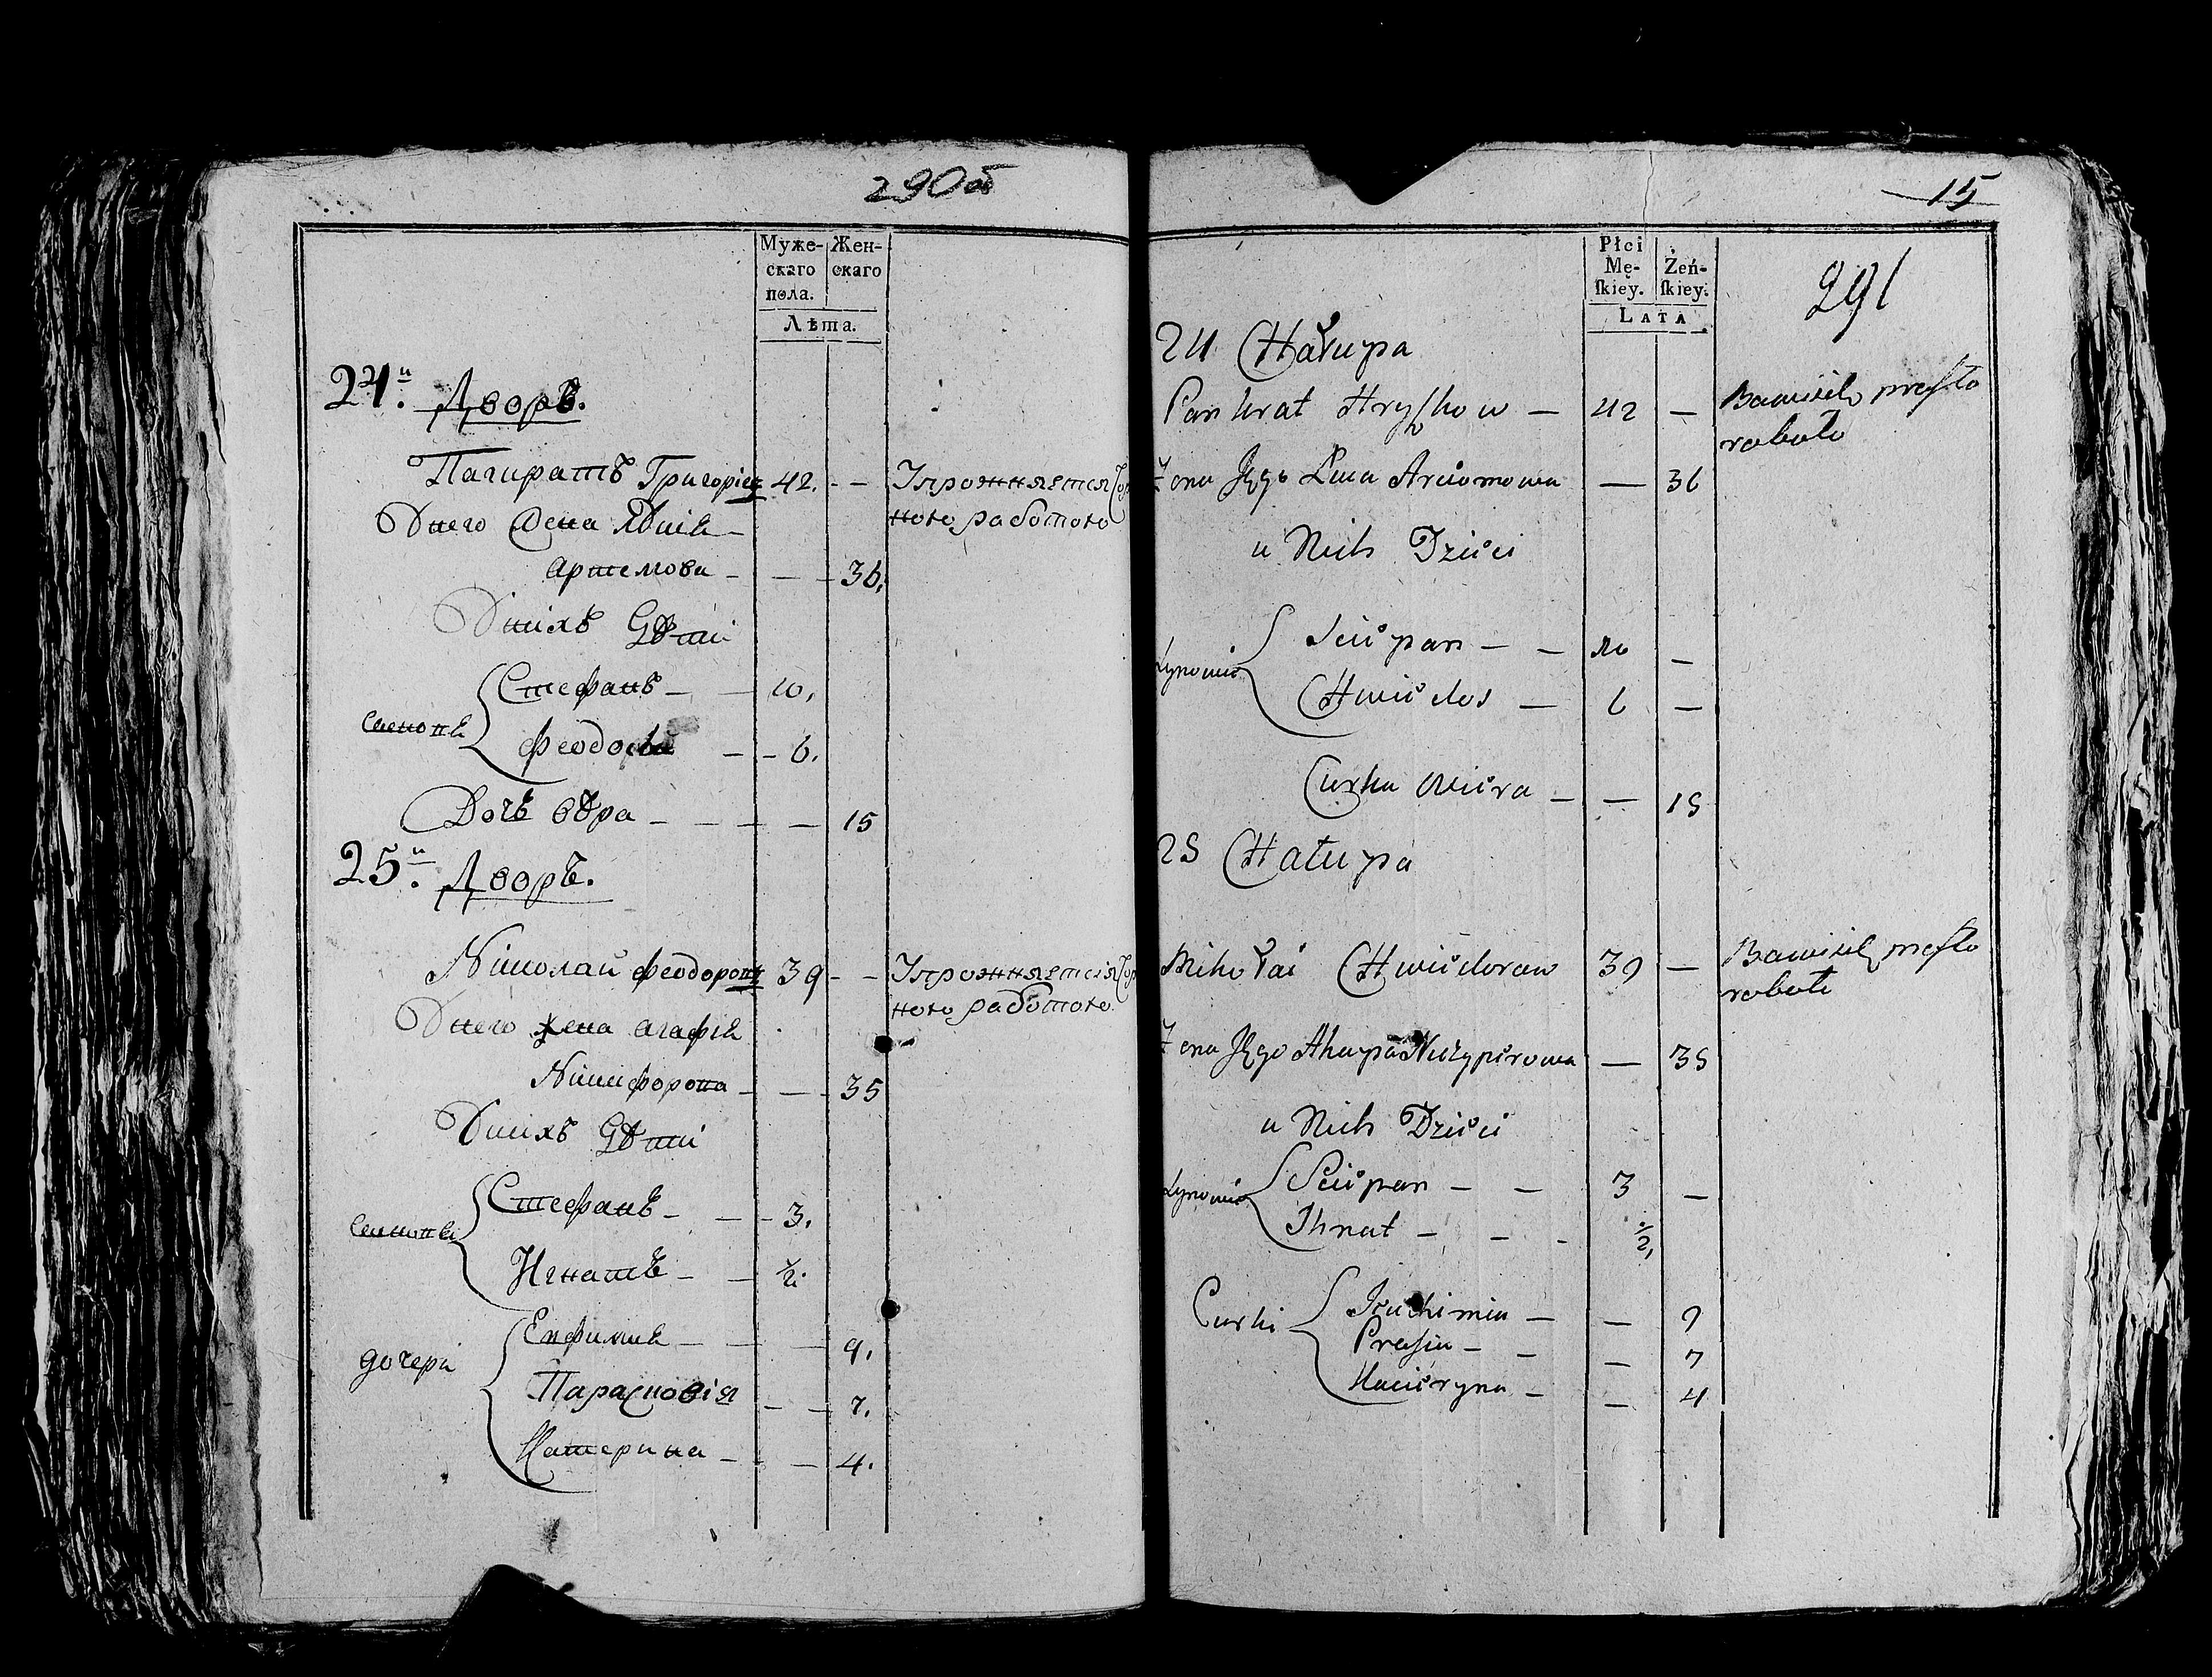 290об
Муже-
скаго
пола.
Жен-
скаго
Лѣта.
24.й Дворъ.
Панкратъ Григорiев 42. - -
Упрожняется
ного работою
Унего Жена
Артемова - - - 36.
Унихъ Дѣти
Стефанъ - - 10.
Феодосiй - - 6.
Дочь Вѣра - - - - 15
25.й Дворъ.
Николай Феодоровъ 39 - -
Упрожняется
ного работою
Унего жена Агафiя
Никифорова - - - 35
Унихъ Дѣти
Стефанъ - - - 3.
Игнатъ - - ½.
дочери
Евфимия - - - 9.
Парасковiя - - 7.
Катерина - - - 4.
15
291
Płci
Mę-
ſkiey.
Żeń-
ſkiey.
LATA
24 Chałupa
Pankrat Hryſzkow - 42 -
Bawiceł, proſto
roboto
Żona Jego Arciomowa - 36
u Nich Dzieci
Synowie
Sciepan - - 10 -
Chwiedos - 6 -
Curka Wiera - - 15
25 Chałupa
Mikołai Chwiedorow 39 -
Żona Jego Ahapa Niczypierowa - 35
u Nich Dzieci
Synowie
Sciepan - - 3 -
Ihnat - - - ½
Curki
Jeuchimia - - 9
Prasia - - - 7
Kacieryna - - 4